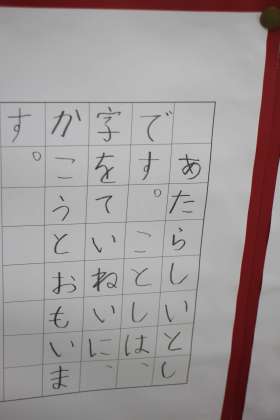 あたらしいとし
です。ことしは、
字をていねいに、
かこうとおもいま
す。